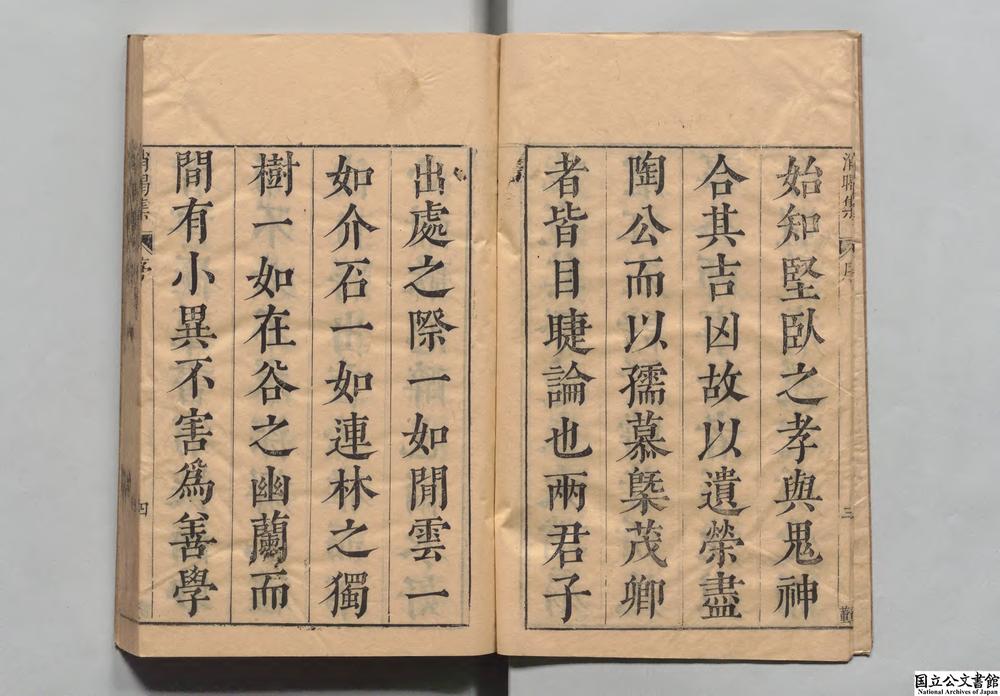 始知堅臥之孝與鬼神
合其吉凶故以遺榮盡
陶公而以孺慕槩茂卿
者皆目睫論也兩君子
出處之際一如閒雲一
如介石一如連林之獨
樹一如在谷之幽蘭而
間有小異不害爲善學
集
序
三
集
序
四
国立公文書館
National Archives of Japan